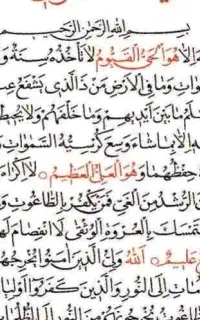 بسم الله الرحمن الرحيم
هُوَ الْحَيُّ الْقَيُّومُ لَا تَأْخُذُهُ سِنَةٌ وَ
وَاتِ وَمَا فِي الْأَرْضِ مَنْ ذَا الَّذِي يَشْفَعُ عِنْ
لَمُ مَا بَيْنَ أَيْدِيهِمْ وَمَا خَلْفَهُمْ وَلَا يُحِيطُ
إِلَّا بِمَا شَاءَ وَسِعَ كُرْسِيُّهُ السَّمٰوَاتِ وَ
حِفْظُهُمَا وَهُوَ الْعَلِيُّ الْعَظِيمُ لَا إِكْرَاهَ
الرُّشْدُ مِنَ الْغَيِّ فَمَنْ يَكْفُرْ بِالطَّاغُوتِ وَ
تَمْسَكَ بِالْعُرْوَةِ الْوُثْقٰى لَا انْفِصَامَ لَهَا
عَلِيمٌ اللهُ وَلِيُّ الَّذِينَ آمَنُوا يُخْرِجُهُمْ
مَاتِ إِلَى النُّورِ وَالَّذِينَ كَفَرُوا أَوْلِيَا